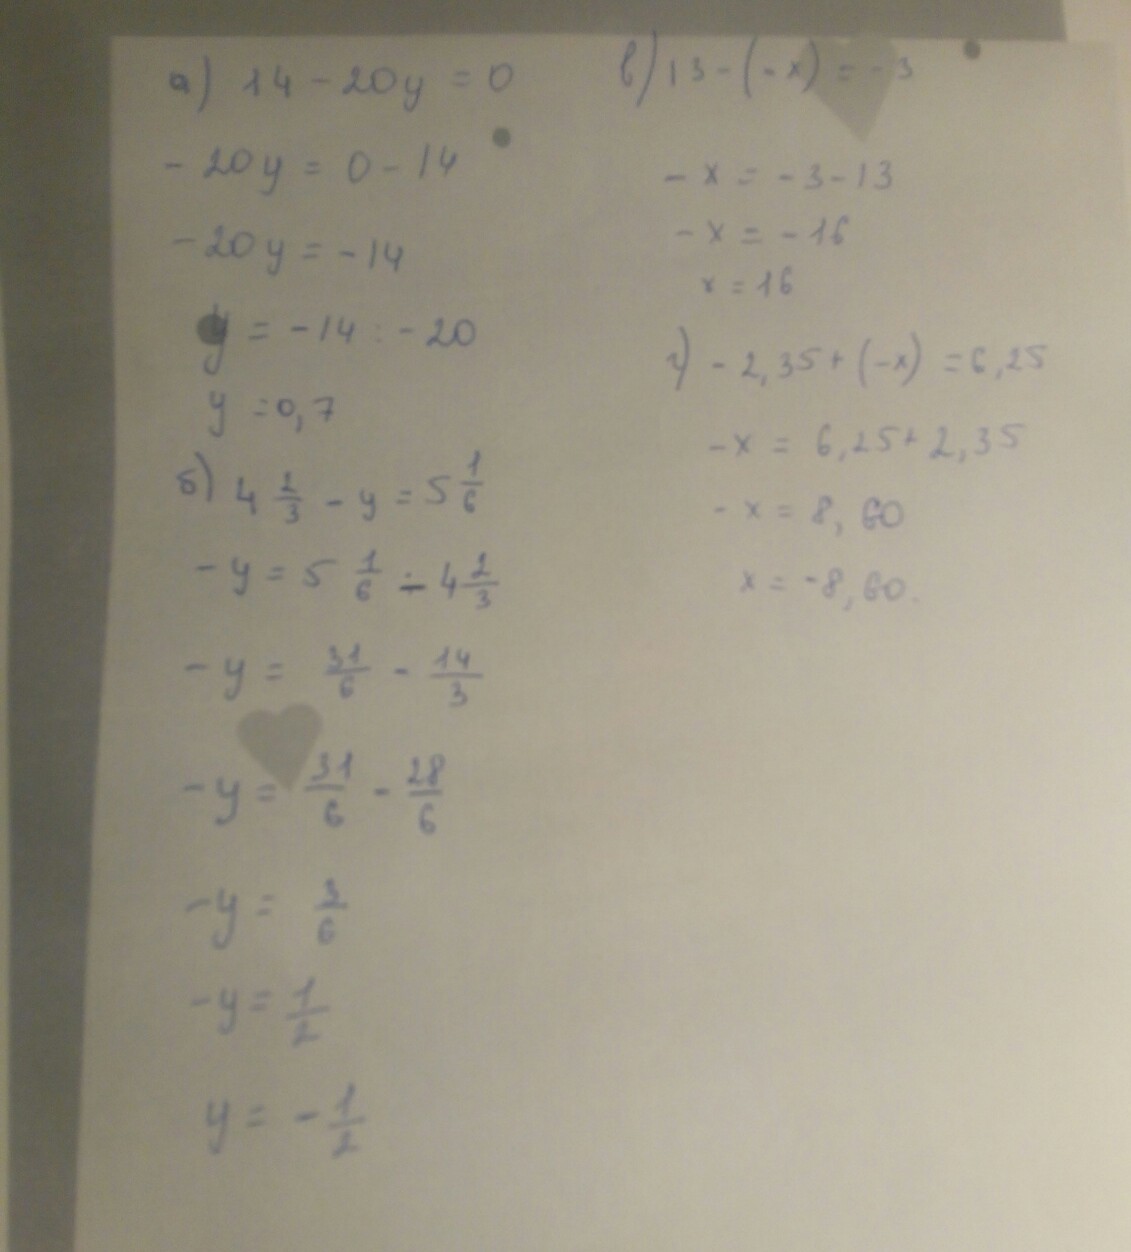 а) 14 - 20y = 0
- 20y = 0 - 14
- 20y = - 14
y = - 14 : - 20
y = 0,7
б) 4 2/3 - y = 5 1/6
- y = 5 1/6 - 4 2/3
- y = 31/6 - 14/3
- y = 31/6 - 28/6
- y = 3/6
- y = 1/2
y = - 1/2
в) 13 - (- x) = - 3
- x = - 3 - 13
- x = - 16
x = 16
г) - 2,35 + (-x) = 6,25
- x = 6,25 + 2,35
- x = 8,60
x = - 8,60.